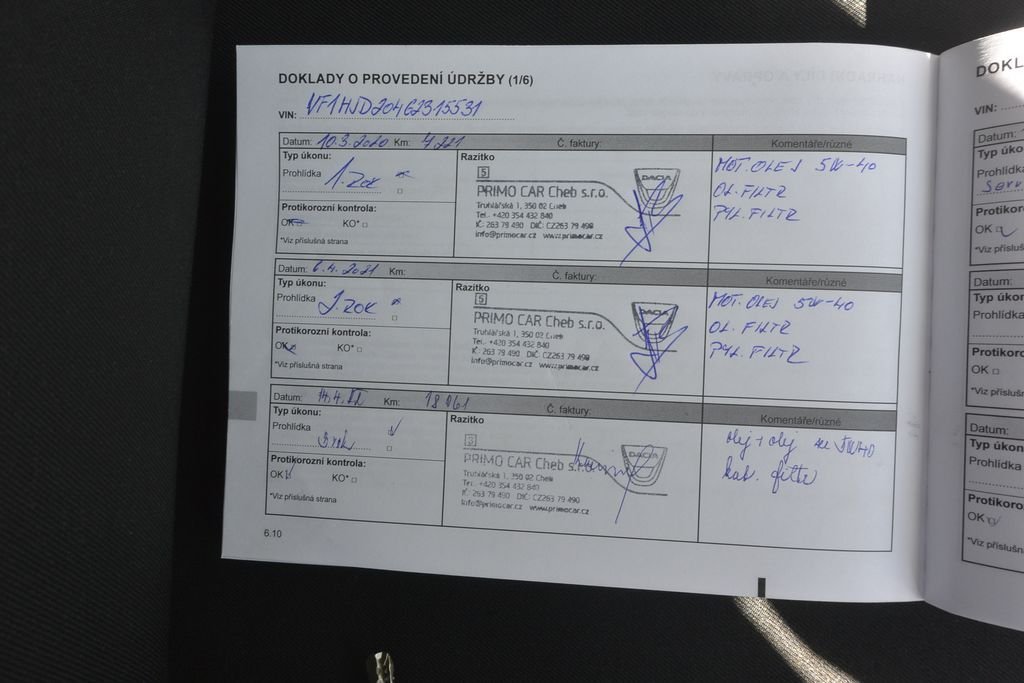 DOKLADY O PROVEDENÍ ÚDRŽBY (1/6)
VIN: VF1HJD20462315531
Datum: 10.3.2020 Km: 4221 Č. faktury: Komentáře/různé
Typ úkonu:
Prohlídka 1. rok
Protikorozní kontrola:
OK KO*
*Viz příslušná strana
Razítko
5
PRIMO CAR Cheb s.r.o.
Truhlářská 1, 350 02 Cheb
Tel. +420 354 432 840
IČ: 263 79 490 DIČ: CZ263 79 490
info@primocar.cz www.primocar.cz
DACIA
MOT. OLEJ 5W-40
OL. FILTR
PYL. FILTR
Datum: 6.4. 2021 Km: Č. faktury: Komentáře/různé
Typ úkonu:
Prohlídka 2. rok
Protikorozní kontrola:
OK KO*
*Viz příslušná strana
Razítko
5
PRIMO CAR Cheb s.r.o.
Truhlářská 1, 350 02 Cheb
Tel. +420 354 432 840
IČ: 263 79 490 DIČ: CZ263 79 490
info@primocar.cz www.primocar.cz
DACIA
MOT. OLEJ 5W-40
OL. FILTR
PYL. FILTR
Datum: 14.4. Km: Č. faktury: Komentáře/různé
Typ úkonu:
Prohlídka 3. rok
Protikorozní kontrola:
OK KO*
*Viz příslušná strana
Razítko
3
PRIMO CAR Cheb s.r.o.
Truhlářská 1, 350 02 Cheb
Tel. +420 354 432 840
IČ: 263 79 490 DIČ: CZ263 79 490
info@primocar.cz www.primocar.cz
DACIA
olej + olej
kab. filtr
6.10
DOKL
VIN:
Datum:
Typ úko
Prohlídka
Serv
Protikoro
OK
*Viz příslušn
Datum:
Typ úkor
Prohlídka
Protikoro
OK
*Viz příslušn
Datum:
Typ úkon
Prohlídka
Protikoro
OK
*Viz příslušn